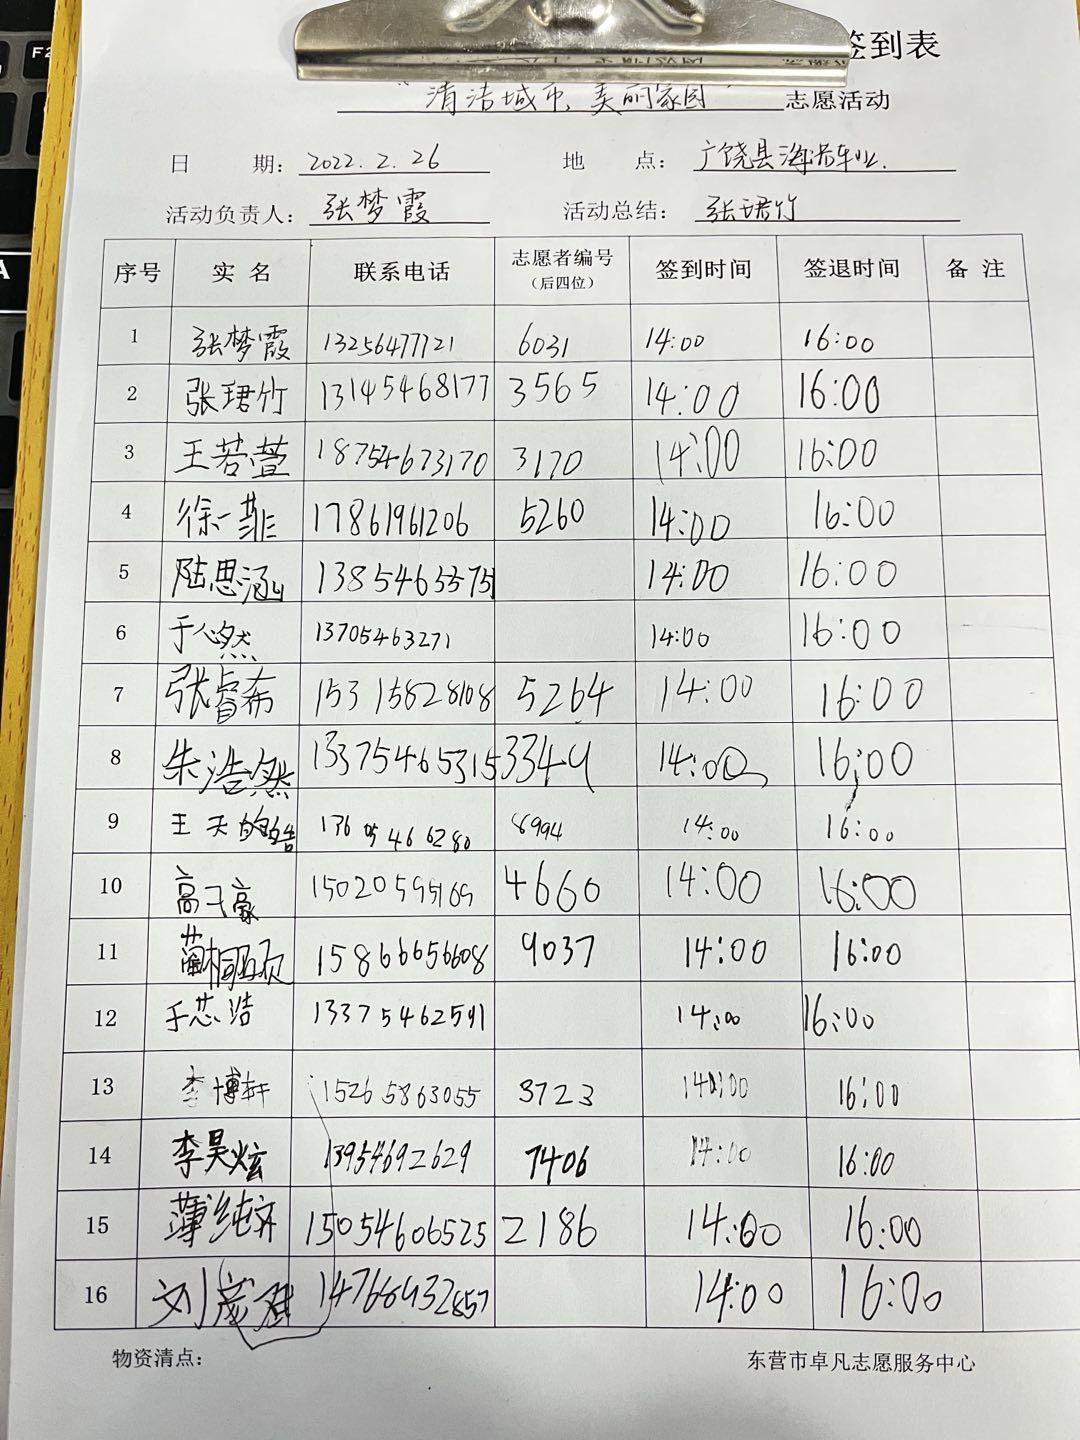 签到表
"清洁城市,美丽家园" 志愿活动
日 期: 2022.2.26 地 点: 广饶县海浩车业.
活动负责人: 张梦霞 活动总结: 张珺竹
序号 实名 联系电话 志愿者编号(后四位) 签到时间 签退时间 备注
1 张梦霞 13256477721 6031 14:00 16:00
2 张珺竹 13145468177 3565 14:00 16:00
3 王若萱 18754673170 3170 14:00 16:00
4 徐一菲 17861961206 5260 14:00 16:00
5 陆思涵 13854653575 14:00 16:00
6 于心然 13705463271 14:00 16:00
7 张睿希 15315828108 5264 14:00 16:00
8 朱浩然 13375465315 3349 14:00 16:00
9 王天 13605466280 8994 14:00 16:00
10 高子豪 15020595169 4660 14:00 16:00
11 15866656608 9037 14:00 16:00
12 于芯浩 13375462591 14:00 16:00
13 李博轩 15265863055 3723 14:00 16:00
14 李昊炫 13954692629 7406 14:00 16:00
15 薄纯妍 15054606525 2186 14:00 16:00
16 刘彦君 14766432857 14:00 16:00
物资清点: 东营市卓凡志愿服务中心